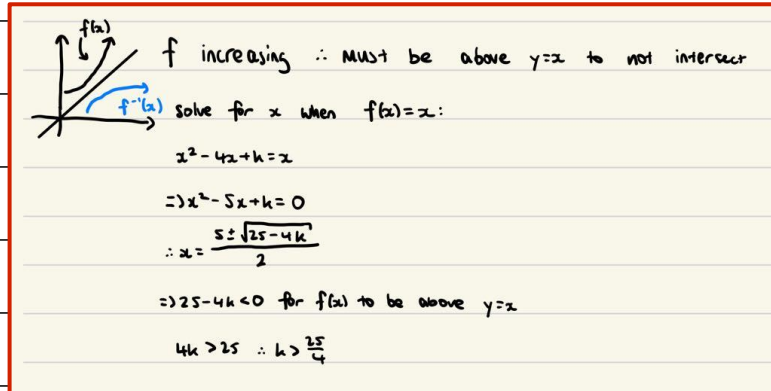 f(x)
f increasing ∴ Must be above y=x to not intersect
f⁻¹(x)
solve for x when f(x)=x:
x²-4x+k=x
=>x²-5x+k=0
∴x= (5±√(25-4k))/2
=>25-4k<0 for f(x) to be above y=x
4k>25 ∴ k>25/4